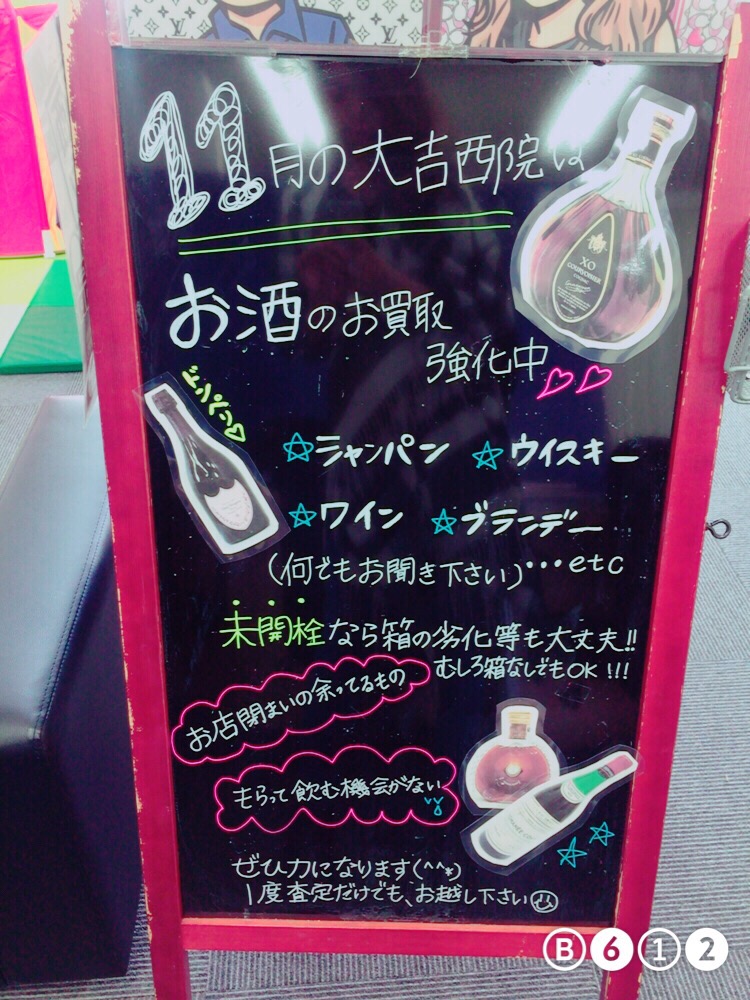 11月の大吉西院は
お酒のお買取
強化中♡♡
ドンペリ♡
☆シャンパン ☆ウイスキー
☆ワイン ☆ブランデー
(何でもお聞き下さい)…etc
未開栓なら箱の劣化等も大丈夫!!
むしろ箱なしでもOK!!!
お店閉まいの余ってるもの
もらって飲む機会がない
ぜひ力になります(^^*)
1度査定だけでも、お越し下さい
XO
COURVOISIER
COGNAC
B612